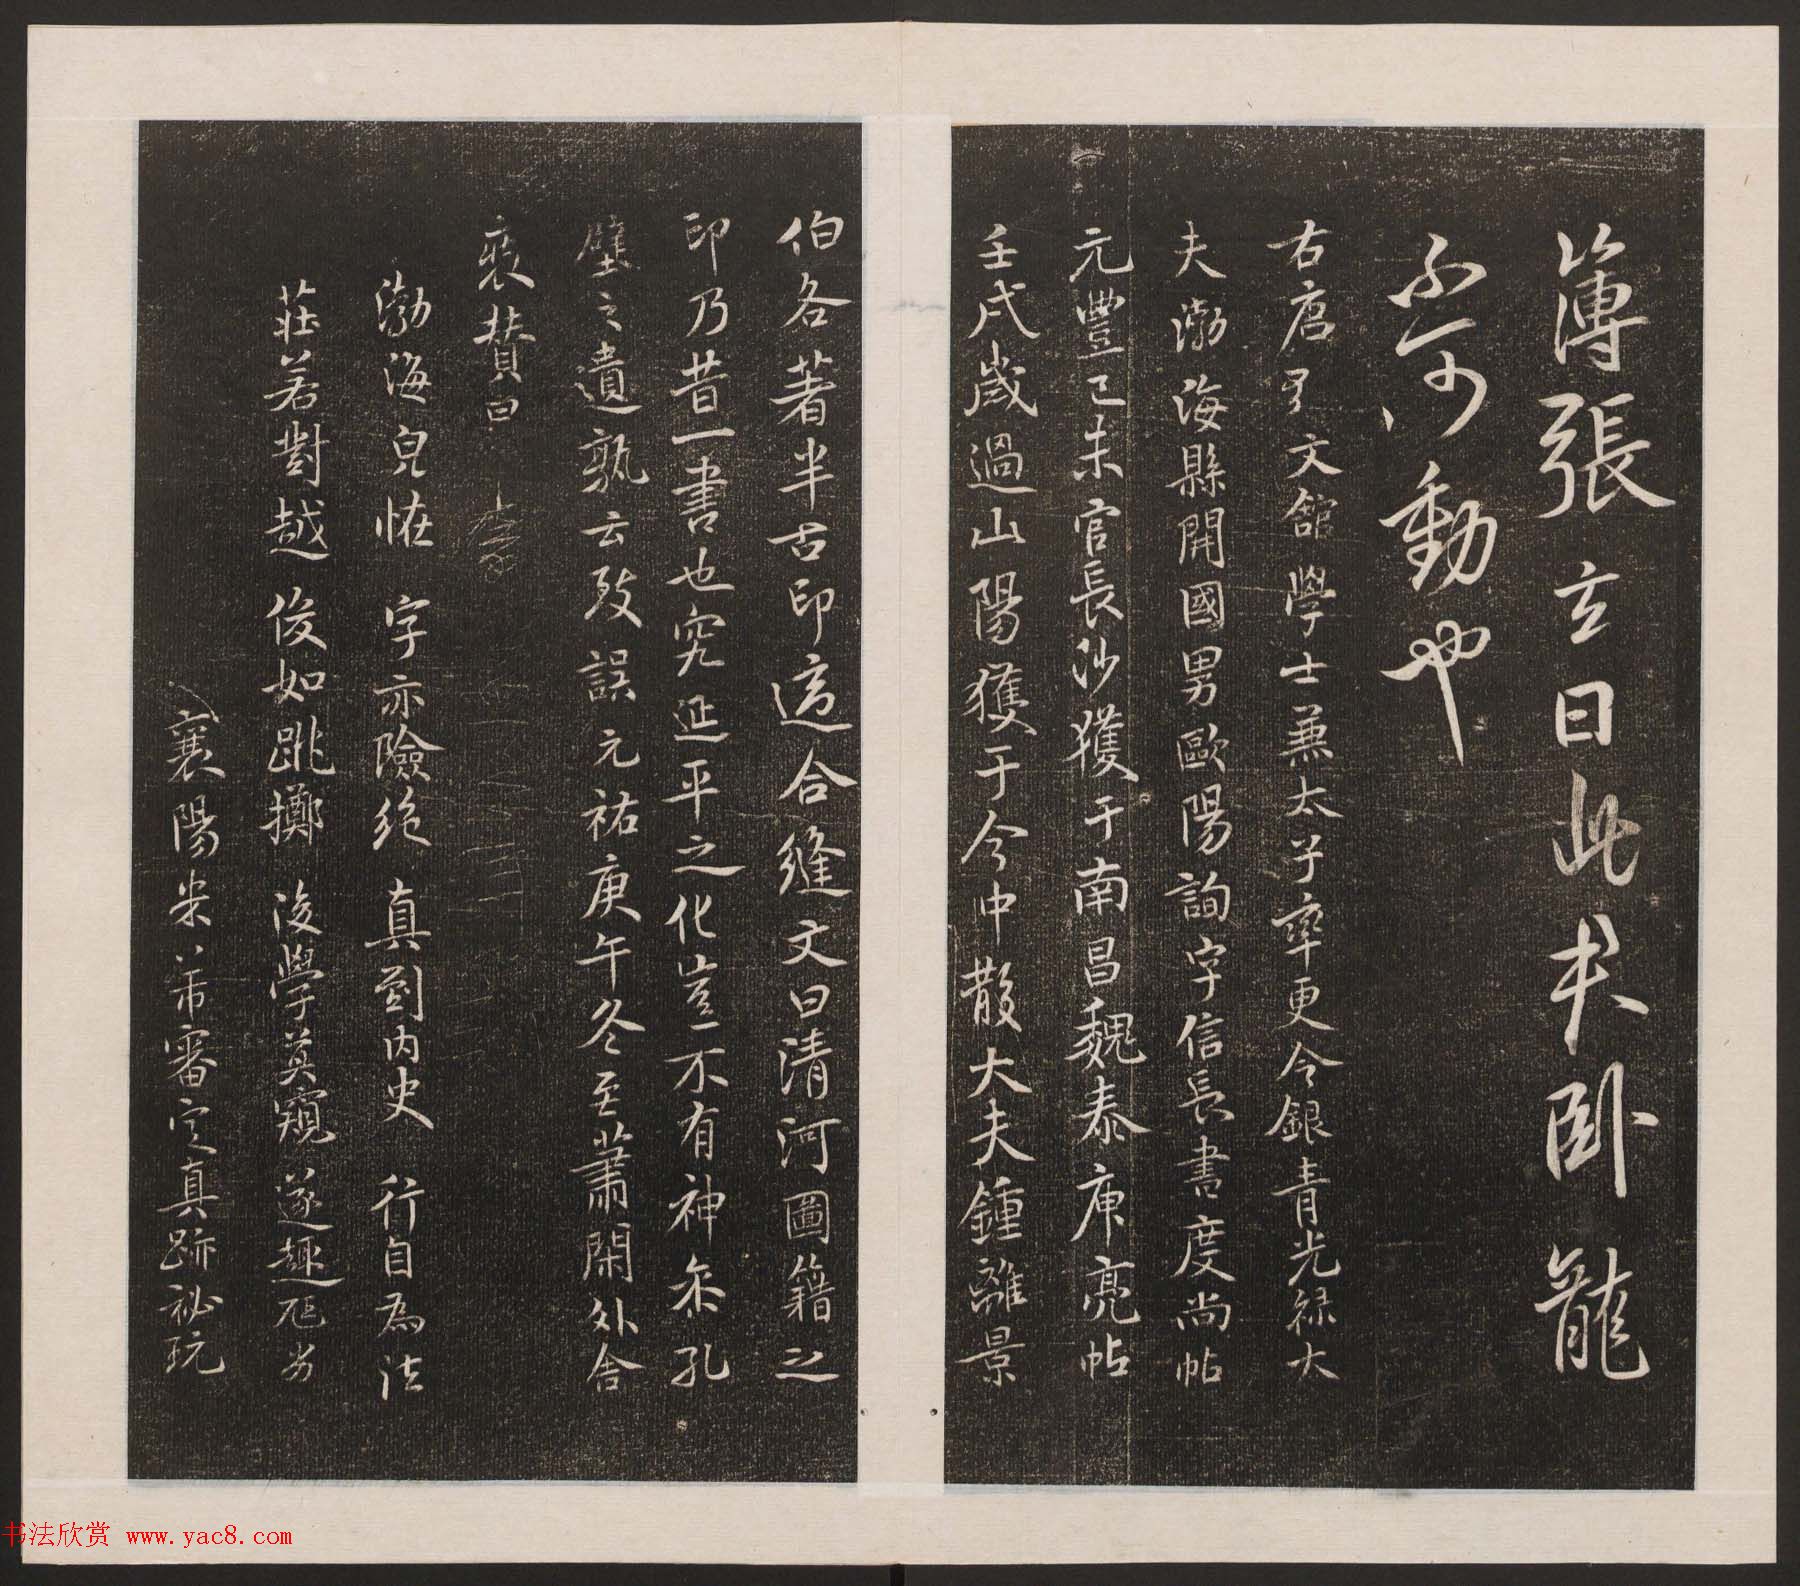 簿張玄曰此夫卧龍
不可動也
右唐弘文舘學士兼太子率更令銀青光禄大
夫渤海縣開國男歐陽詢字信長書度尚帖
元豐己未官長沙獲于南昌魏泰庾亮帖
壬戌嵗過山陽獲于今中散大夫鍾離景
伯各著半古印這合縫文曰清河圖籍之
印乃昔一書也究延平之化豈不有神余孔
壁之遺孰云致誤元祐庚午冬至蕭閑外舍
裝贊曰
渤海皃恠 字亦險絶 真到内史 行自為法
莊若對越 俊如跳擲 後學莫窺 遂趣尫劣
襄陽米芾審定真跡祕玩
书法欣赏 www.yac8.com